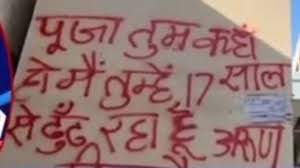 पूजा तुम कहा
हो मैं तुम्हे 17 साल
से ढुँढ रहा हूँ अरूण